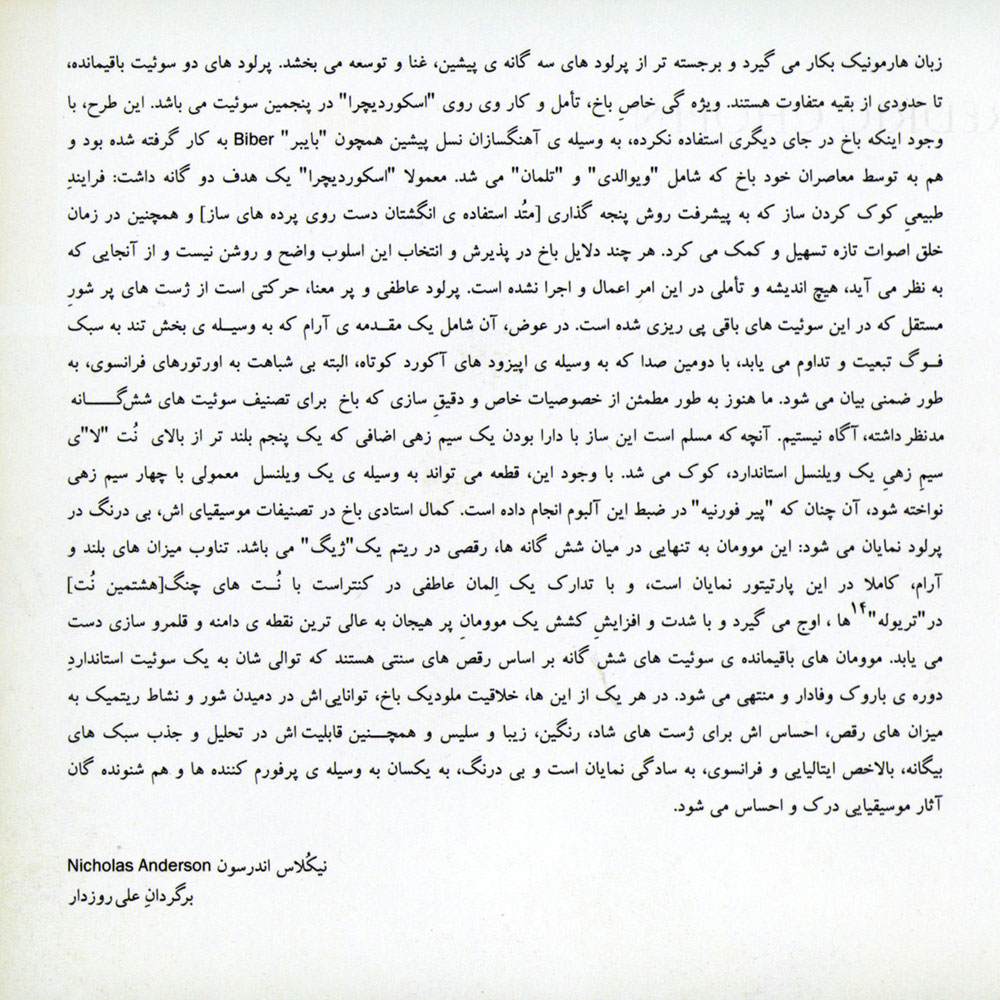 زبان هارمونیک بکار می گیرد و برجسته تر از پرلود های سه گانه ی پیشین، غنا و توسعه می بخشد. پرلود های دو سوئیت باقیمانده،
تا حدودی از بقیه متفاوت هستند. ویژه گی خاصِ باخ، تأمل و کار وی روی "اسکوردیچرا" در پنجمین سوئیت می باشد. این طرح، با
وجود اینکه باخ در جای دیگری استفاده نکرده، به وسیله ی آهنگسازان نسل پیشین همچون "بایبر" Biber به کار گرفته شده بود و
هم به توسط معاصران خود باخ که شامل "ویوالدی" و "تلمان" می شد. معمولا "اسکوردیچرا" یک هدف دو گانه داشت: فرایندِ
طبیعیِ کوک کردن ساز که به پیشرفت روش پنجه گذاری [متُد استفاده ی انگشتان دست روی پرده های ساز] و همچنین در زمان
خلق اصوات تازه تسهیل و کمک می کرد. هر چند دلایل باخ در پذیرش و انتخاب این اسلوب واضح و روشن نیست و از آنجایی که
به نظر می آید، هیچ اندیشه و تأملی در این امرِ اعمال و اجرا نشده است. پرلود عاطفی و پر معنا، حرکتی است از ژست های پر شورِ
مستقل که در این سوئیت های باقی پی ریزی شده است. در عوض، آن شامل یک مقـدمه ی آرام که به وسیـله ی بخش تند به سبک
فـوگ تبعیت و تداوم می یابد، با دومین صدا که به وسیله ی اپیزود های آکورد کوتاه، البته بی شباهت به اورتورهای فرانسوی، به
طور ضمنی بیان می شود. ما هنوز به طور مطمئن از خصوصیات خاص و دقیقِ سازی که باخ برای تصنیف سوئیت های شش‌گـــــانه
مدنظر داشته، آگاه نیستیم. آنچه که مسلم است این ساز با دارا بودن یک سیم زهی اضافی که یک پنجم بلند تر از بالای نُت "لا"ی
سیمِ زهیِ یک ویلنسل استاندارد، کوک می شد. با وجود این، قطعه می تواند به وسیله ی یک ویلنسل معمولی با چهار سیم زهی
نواخته شود، آن چنان که "پیر فورنیه" در ضبط این آلبوم انجام داده است. کمال استادی باخ در تصنیفات موسیقیای اش، بی درنگ در
پرلود نمایان می شود: این موومان به تنهایی در میان شش گانه ها، رقصی در ریتم یک"ژیگ" می باشد. تناوب میزان های بلند و
آرام، کاملا در این پارتیتور نمایان است، و با تدارک یک اِلمان عاطفی در کنتراست با نُـت های چنگ[هشتمین نُت]
در"تریوله"۱۴ها ، اوج می گیرد و با شدت و افزایشِ کشش یک موومانِ پر هیجان به عالی ترین نقطه ی دامنه و قلمرو سازی دست
می یابد. موومان های باقیمانده ی سوئیت های شش گانه بر اساس رقص های سنتی هستند که توالی شان به یک سوئیت استانداردِ
دوره ی باروک وفادار و منتهی می شود. در هر یک از این ها، خلاقیت ملودیک باخ، توانایی‌اش در دمیدن شور و نشاط ریتمیک به
میزان های رقص، احساس اش برای ژست های شاد، رنگین، زیبا و سلیس و همچـــنین قابلیت‌اش در تحلیل و جذب سبک های
بیگانه، بالاخص ایتالیایی و فرانسوی، به سادگی نمایان است و بی درنگ، به یکسان به وسیله ی پرفورم کننده ها و هم شنونده گان
آثار موسیقیایی درک و احساس می شود.
نیکُلاس اندرسون Nicholas Anderson
برگردانِ علی روزدار